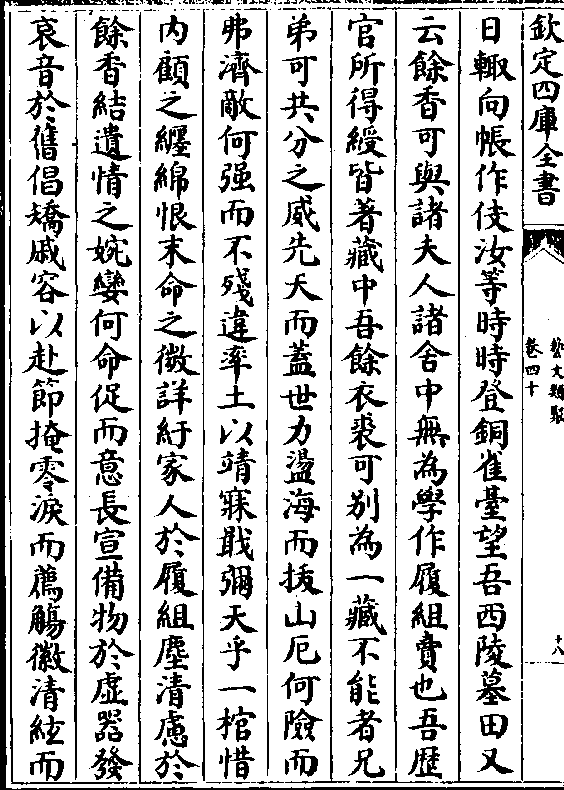 欽定四庫全書
藝文類聚
卷四十
十八
日輙向帳作伎汝等時時登銅雀臺望吾西陵墓田又
云餘香可與諸夫人諸舍中無為學作履組賣也吾歴
官所得綬皆著藏中吾餘衣裘可別為一藏不能者兄
弟可共分之威先天而蓋世力盪海而拔山厄何險而
弗濟敵何强而不殘違率土以靖寐戢彌天乎一棺惜
内顧之纒綿恨末命之微詳紆家人於履組塵清慮於
餘香結遺情之婉孌何命促而意長宣備物於虚器發
哀音於舊倡矯戚容以赴節掩零淚而薦觴徽清絃而